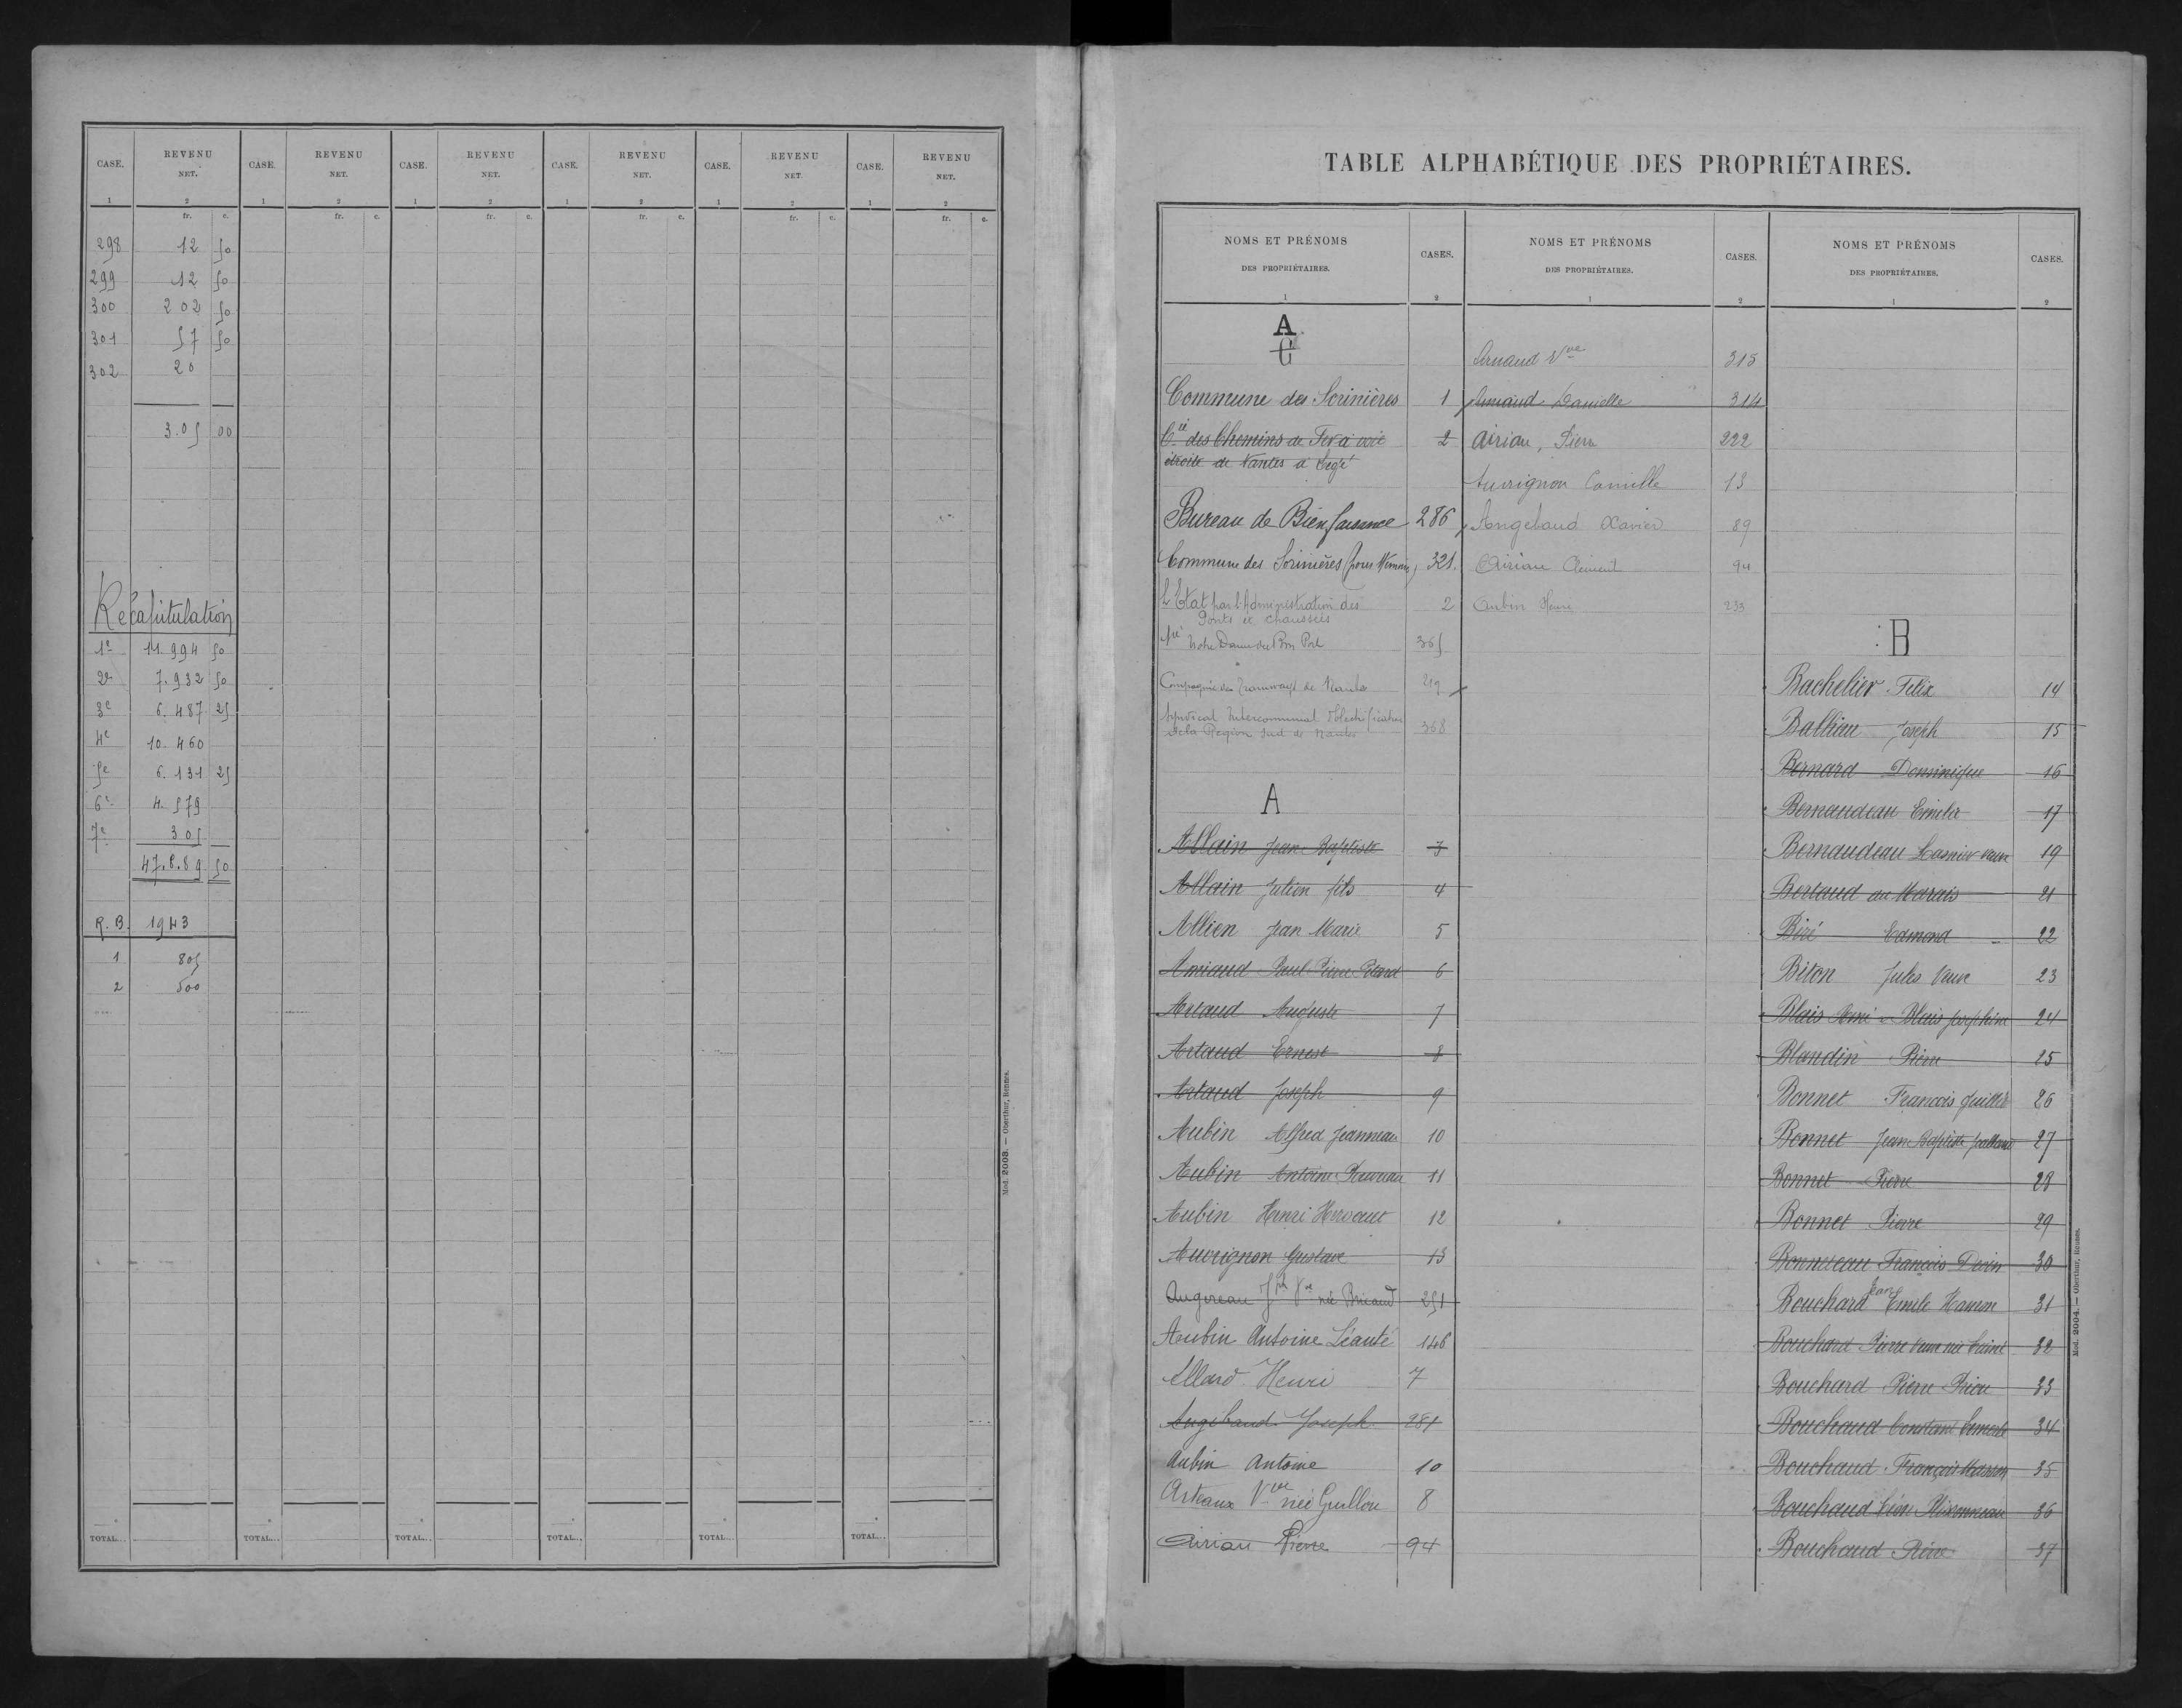 CASE. REVENU NET. CASE. REVENU NET. CASE. REVENU NET. CASE. REVENU NET. CASE. REVENU NET. CASE. REVENU NET.
1 2 1 2 1 2 1 2 1 2 1 2
fr. c. fr. c. fr. c. fr. c. fr. c. fr. c.
298 12 50
299 12 50
300 202 50
301 57 50
302 20
3.05 00
Récapitulation
1e 11.994 50
2e 7.932 50
3e 6.487 25
4e 10.460
5e 6.131 25
6e 4.579
7e 305
47.889 50
R.B. 1943
1 805
2 500
TOTAL... TOTAL... TOTAL... TOTAL... TOTAL... TOTAL...
Mod. 2003. — Oberthur, Rennes.
TABLE ALPHABÉTIQUE DES PROPRIÉTAIRES.
NOMS ET PRÉNOMS DES PROPRIÉTAIRES. CASES.
1 2
A
C
Commune des Sorinières 1
Cie des Chemins de Fer à voie 2
étroite de Nantes à Legé
Bureau de Bienfaisance 286
Commune des Sorinières (pour 321.
L'Etat par l'Administration des 2
Ponts et chaussées
Sté Notre Dame du Bon Port 365
Compagnie des Tramways de Nantes 219
Syndicat Intercommunal d'Electrification
de la Région Sud de Nantes 368
A
Allain Jean Baptiste 3
Allain Julien fils 4
Allien Jean Marie 5
Amiaud Paul Pierre 6
Artaud Auguste 7
Artaud Ernest 8
Artaud Joseph 9
Aubin Alfred Jeanneau 10
Aubin Antoine 11
Aubin Henri Hervouet 12
Auvrignon Gustave 13
Augereau Jph Ve née Bricaud 251
Aubin Antoine Léauté 146
Allard Henri 7
Angebaud Joseph 281
Aubin Antoine 10
Arteaux Vve née Guillou 8
Airiau Pierre 94
NOMS ET PRÉNOMS DES PROPRIÉTAIRES. CASES.
1 2
Arnaud Vve 315
Arnaud Danielle 314
Airiau, Pierre 222
Auvrignon Camille 13
Angebaud Xavier 89
Airiau Clément 94
Aubin Henri 233
NOMS ET PRÉNOMS DES PROPRIÉTAIRES. CASES.
1 2
B
Bachelier Félix 14
Balliau Joseph 15
Bernard Dominique 16
Bernaudeau Emile 17
Bernaudeau veuve 19
Bertaud au Marais 21
Biré Edmond 22
Biton Jules Veuve 23
Blais Aimé Blais Joséphine 24
Blandin Pierre 25
Bonnet François 26
Bonnet Jean Baptiste 27
Bonnet Pierre 28
Bonnet Pierre 29
Bonneteau François 30
Bouchard Jean Emile Hamon 31
Bouchard Pierre Veuve née 32
Bouchard Pierre Priou 33
Bouchaud Constant 34
Bouchaud François 35
Bouchaud Léon 36
Bouchaud Pierre 37
Mod. 2004. — Oberthur, Rennes.